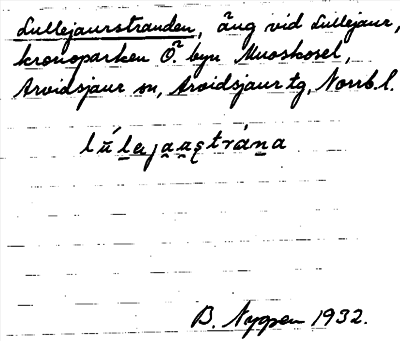 Lullejaurstranden, äng vid Lullejaur,
kronoparken Ö. byn Muoskosel,
Arvidsjaur sn, Arvidsjaur tg, Norrb. l.
lúlejau̯stránа
B. Nygren 1932.